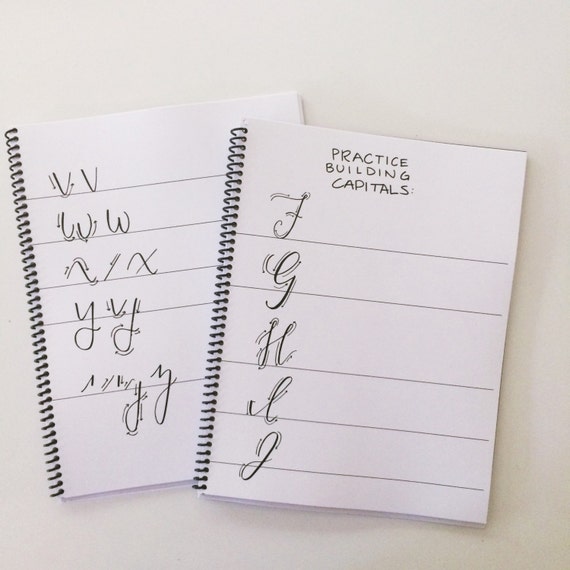 v v
w w
x / x
y y
z
PRACTICE
BUILDING
CAPITALS:
F
G
H
I
J